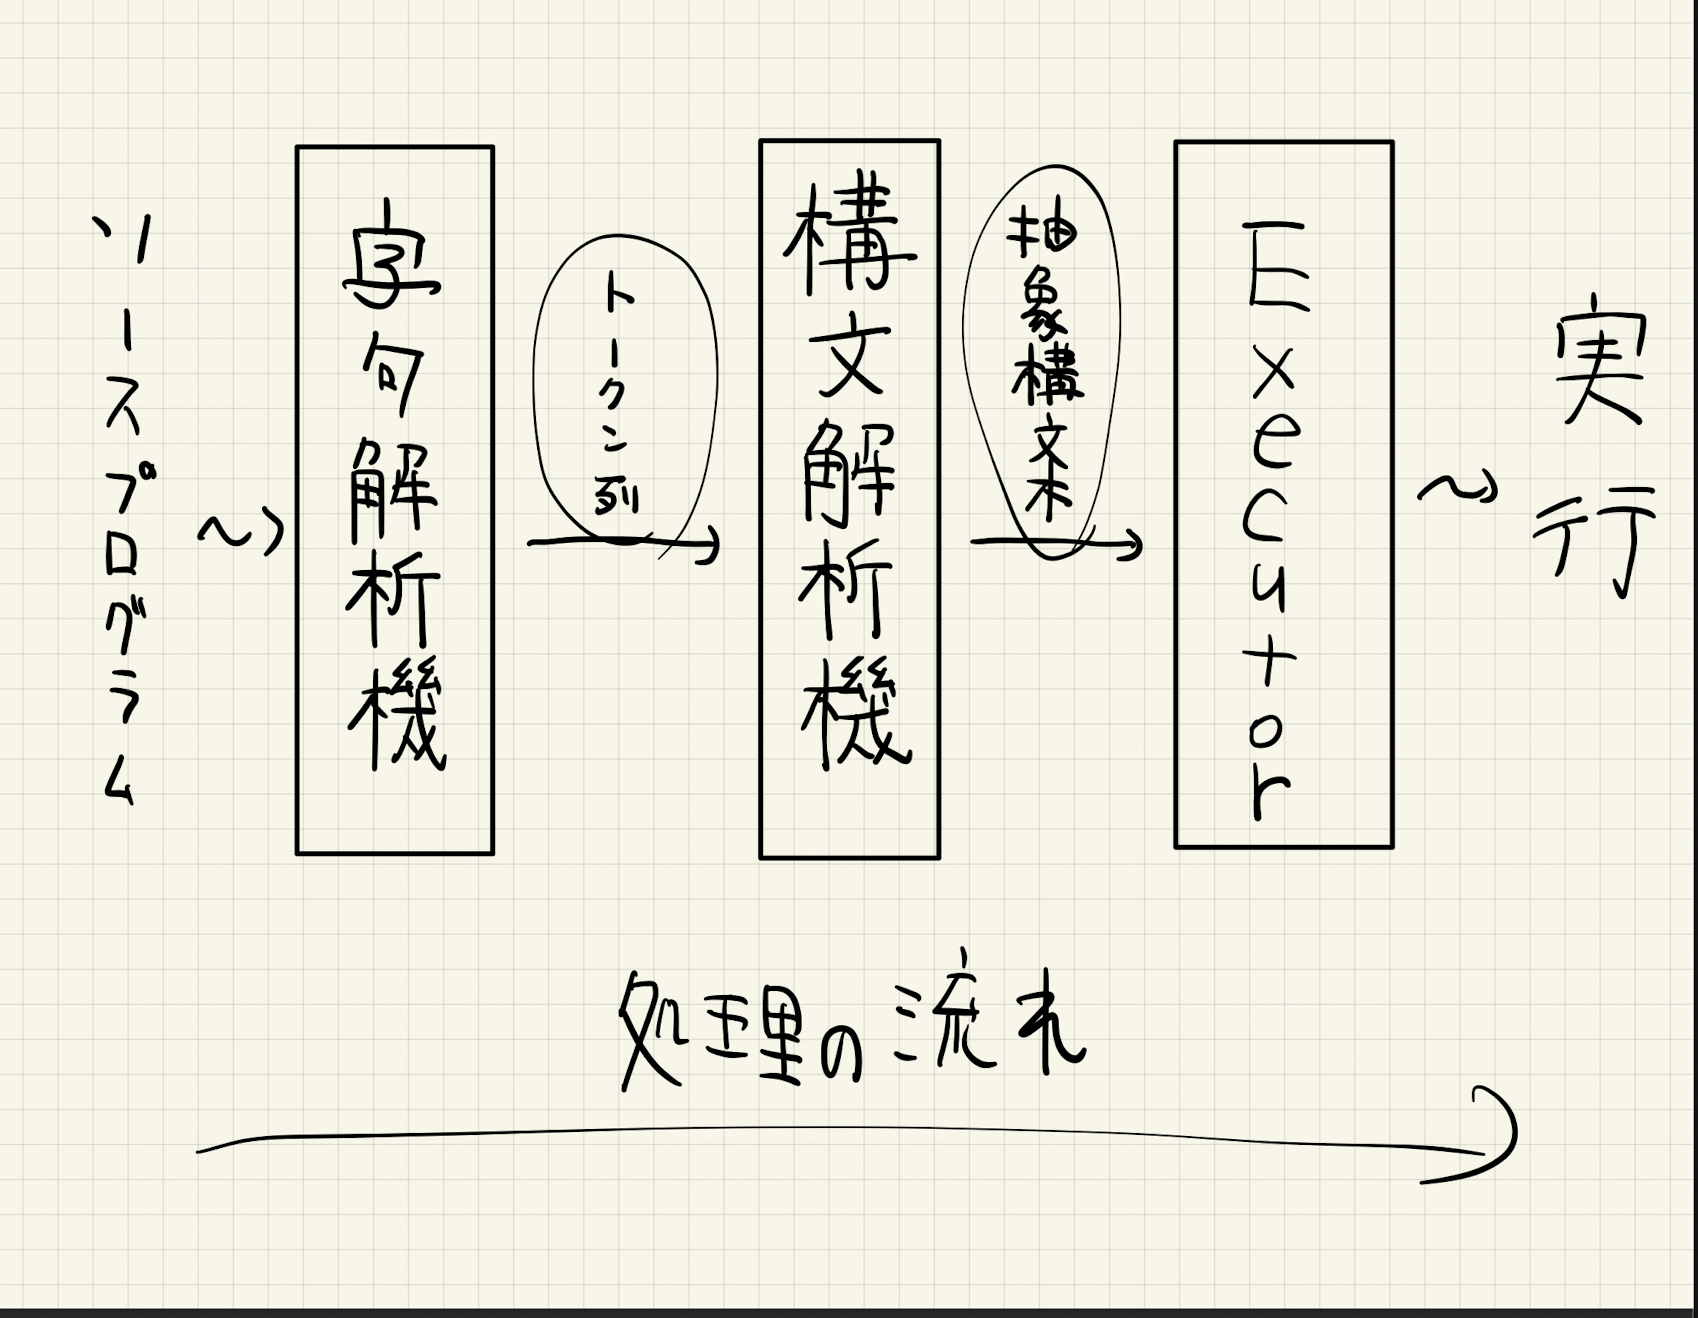 ソースプログラム
字句解析機
トークン列
構文解析機
抽象構文木
Executor
実行
処理の流れ